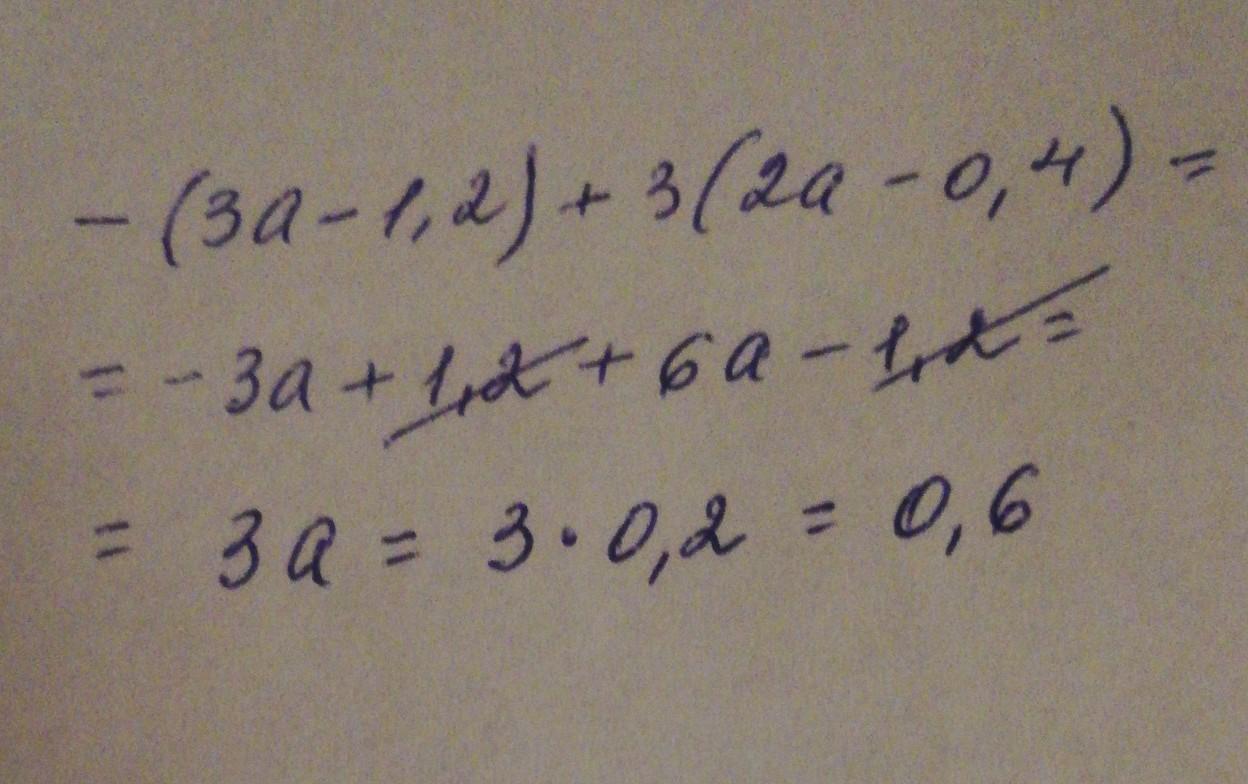 - (3a - 1,2) + 3(2a - 0,4) =
= - 3a + 1,2 + 6a - 1,2 =
= 3a = 3 · 0,2 = 0,6